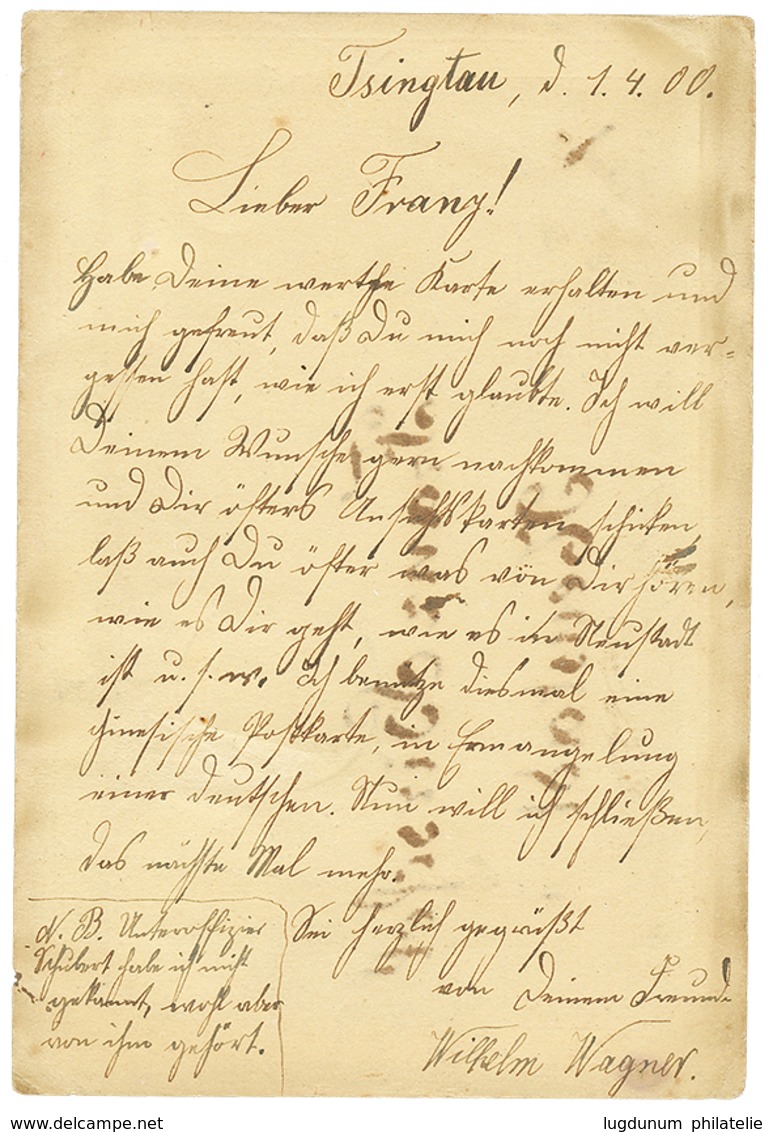 Tsingtau, d. 1.4.00.
Lieber Franz!
Habe Deine werthe Karte erhalten und
mich gefreut, daß Du mich noch nicht ver-
gessen hast, wie ich erst glaubte. Ich will
Deinem Wunsche gern nachkommen
und Dir öfters Ansichtskarten schicken,
laß auch Du öfter was von Dir hören,
wie es Dir geht, wie es in Neustadt
ist u. s. w. Ich benütze diesmal eine
chinesische Postkarte, in Ermangelung
einer deutschen. Nun will ich schließen,
das nächste Mal mehr.
Sei herzlich gegrüßt
von Deinem Freund
Wilhelm Wagner.
N. B. Unteroffizier
Schubert habe ich nicht
gekannt, wohl aber
von ihm gehört.
www.delcampe.net
lugdunum philatelie